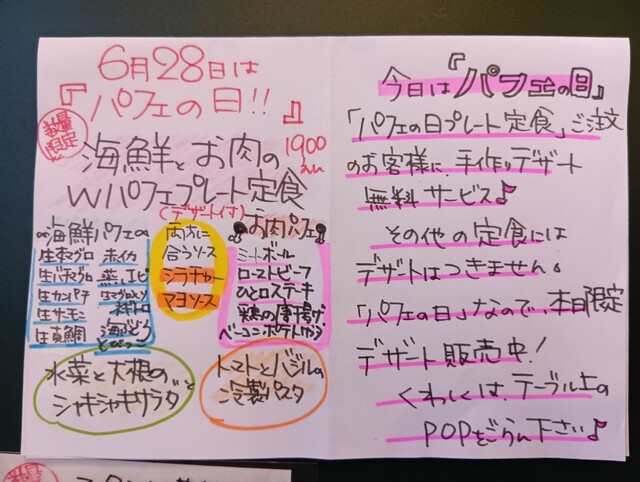 6月28日は
『パフェの日!!』
数量限定
海鮮とお肉の
1900えん
Wパフェプレート定食
(デザート付)
海鮮パフェ
生本マグロ 赤イカ
蒸しエビ
生カンパチ
生サーモン
生真鯛 海ぶどう
とびっこ
両方に
合うソース
シラチャー
マヨソース
お肉パフェ
ミートボール
ローストビーフ
ひと口ステーキ
鶏の唐揚げ
ベーコンポテトサラダ
水菜と大根の
シャキシャキサラダ
トマトとバジルの
冷製パスタ
今日は『パフェの日』
「パフェの日プレート定食」ご注文
のお客様に、手作りデザート
無料サービス♪
その他の定食には
デザートはつきません。
「パフェの日」なので、本日限定
デザート販売中!
くわしくは、テーブル上の
POPをごらん下さい♪